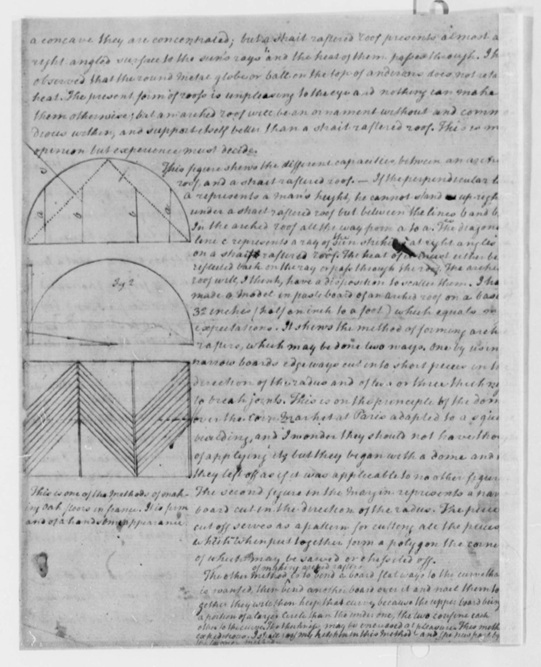 a concave they are concentrated; but a strait raftered roof presents almost a
right angled surface to the sun's rays and the heat of them passes through. I h
observed that the round metal globe or ball on the top of andirons does not reta
heat. The present form of roofs is unpleasing to the eye and nothing can make
them otherwise; but an arched roof will be an ornament without and comm
dious within, and support itself better than a strait raftered roof. This is m
openion but experience must decide.
This figure shews the different capacities between an arched
roof, and a strait raftered roof. — If the perpendicular li
a represents a man's height, he cannot stand up right
under a strait raftered roof but between the lines b and b,
In the arched roof all the way from a to a. The diagona
line c represents a ray of the sun striking at right angles
on a strait raftered roof. The heat of it must either be
reflected back on the ray or pass through the roof. The arched
roof will, I think, have a disposition to scatter them. I ha
made a model in pasteboard of an arched roof on a base
32 inches (half an inch to a foot) which equals my
expectations. It shews the method of forming arche
rafters, which may be done two ways. One by using
narrow boards edgeways cut into short pieces in the
direction of the radius and of two or three thickne
to break joints. This is on the principle of the dome
over the Corn Market at Paris adapted to a squa
building, and I wonder they should not have thou
of applying it; but they began with a dome and
they left off as if it was applicable to no other figure
The second figure in the margin represents a nar
board cut in the direction of the radius. The piece
cut off serves as a pattern for cutting all the pieces
which when put together form a polygon the corne
of which may be sawed or chisseled off.
of making arched rafters
The other method is to bend a board flat ways to the curve tha
is wanted, then bend another board over it and nail them to
gether they will then keep that curve, because the upper board being
a portion of a larger circle than the under one, the two confine each
other to the curve. The thickness may be encreased at pleasure. This meth
Fig 2
This is one of the methods of mak-
ing oak floors in france. It is firm
and of a handsome appearance